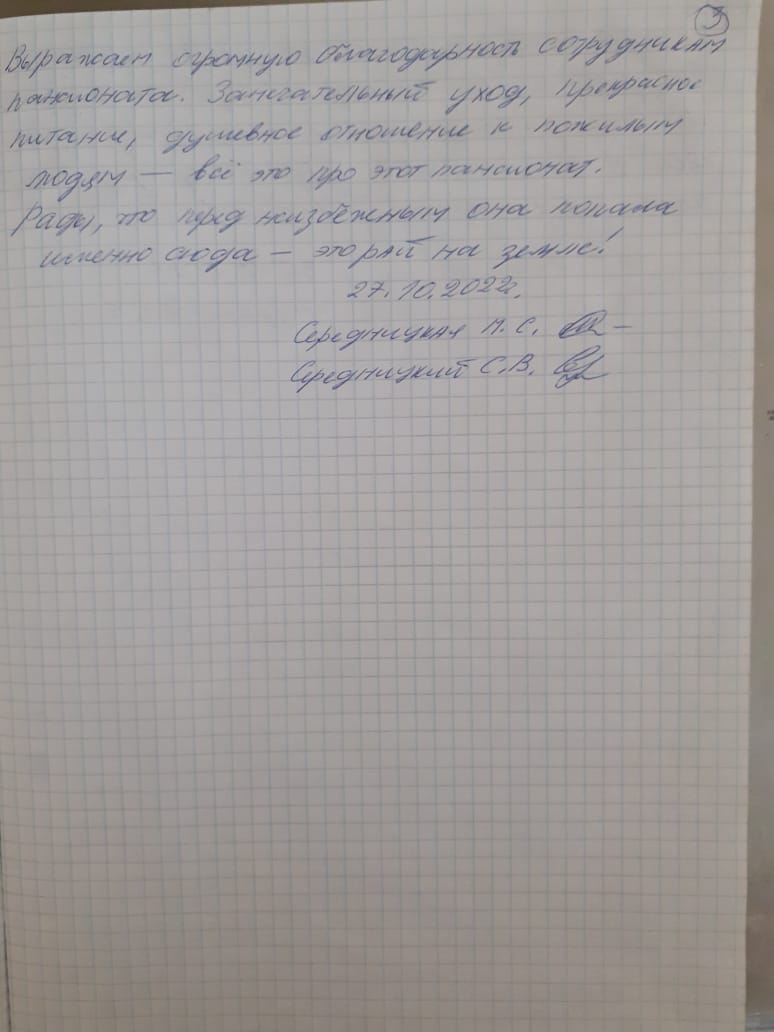 3
Выражаем огромную благодарность сотрудникам
пансионата. Замечательный уход, прекрасное
питание, душевное отношение к пожилым
людям — всё это про этот пансионат.
Рады, что перед неизбежным она попала
именно сюда — это рай на земле!
27.10.2022г.
Середницкая М. С.
Середницкий С. В.